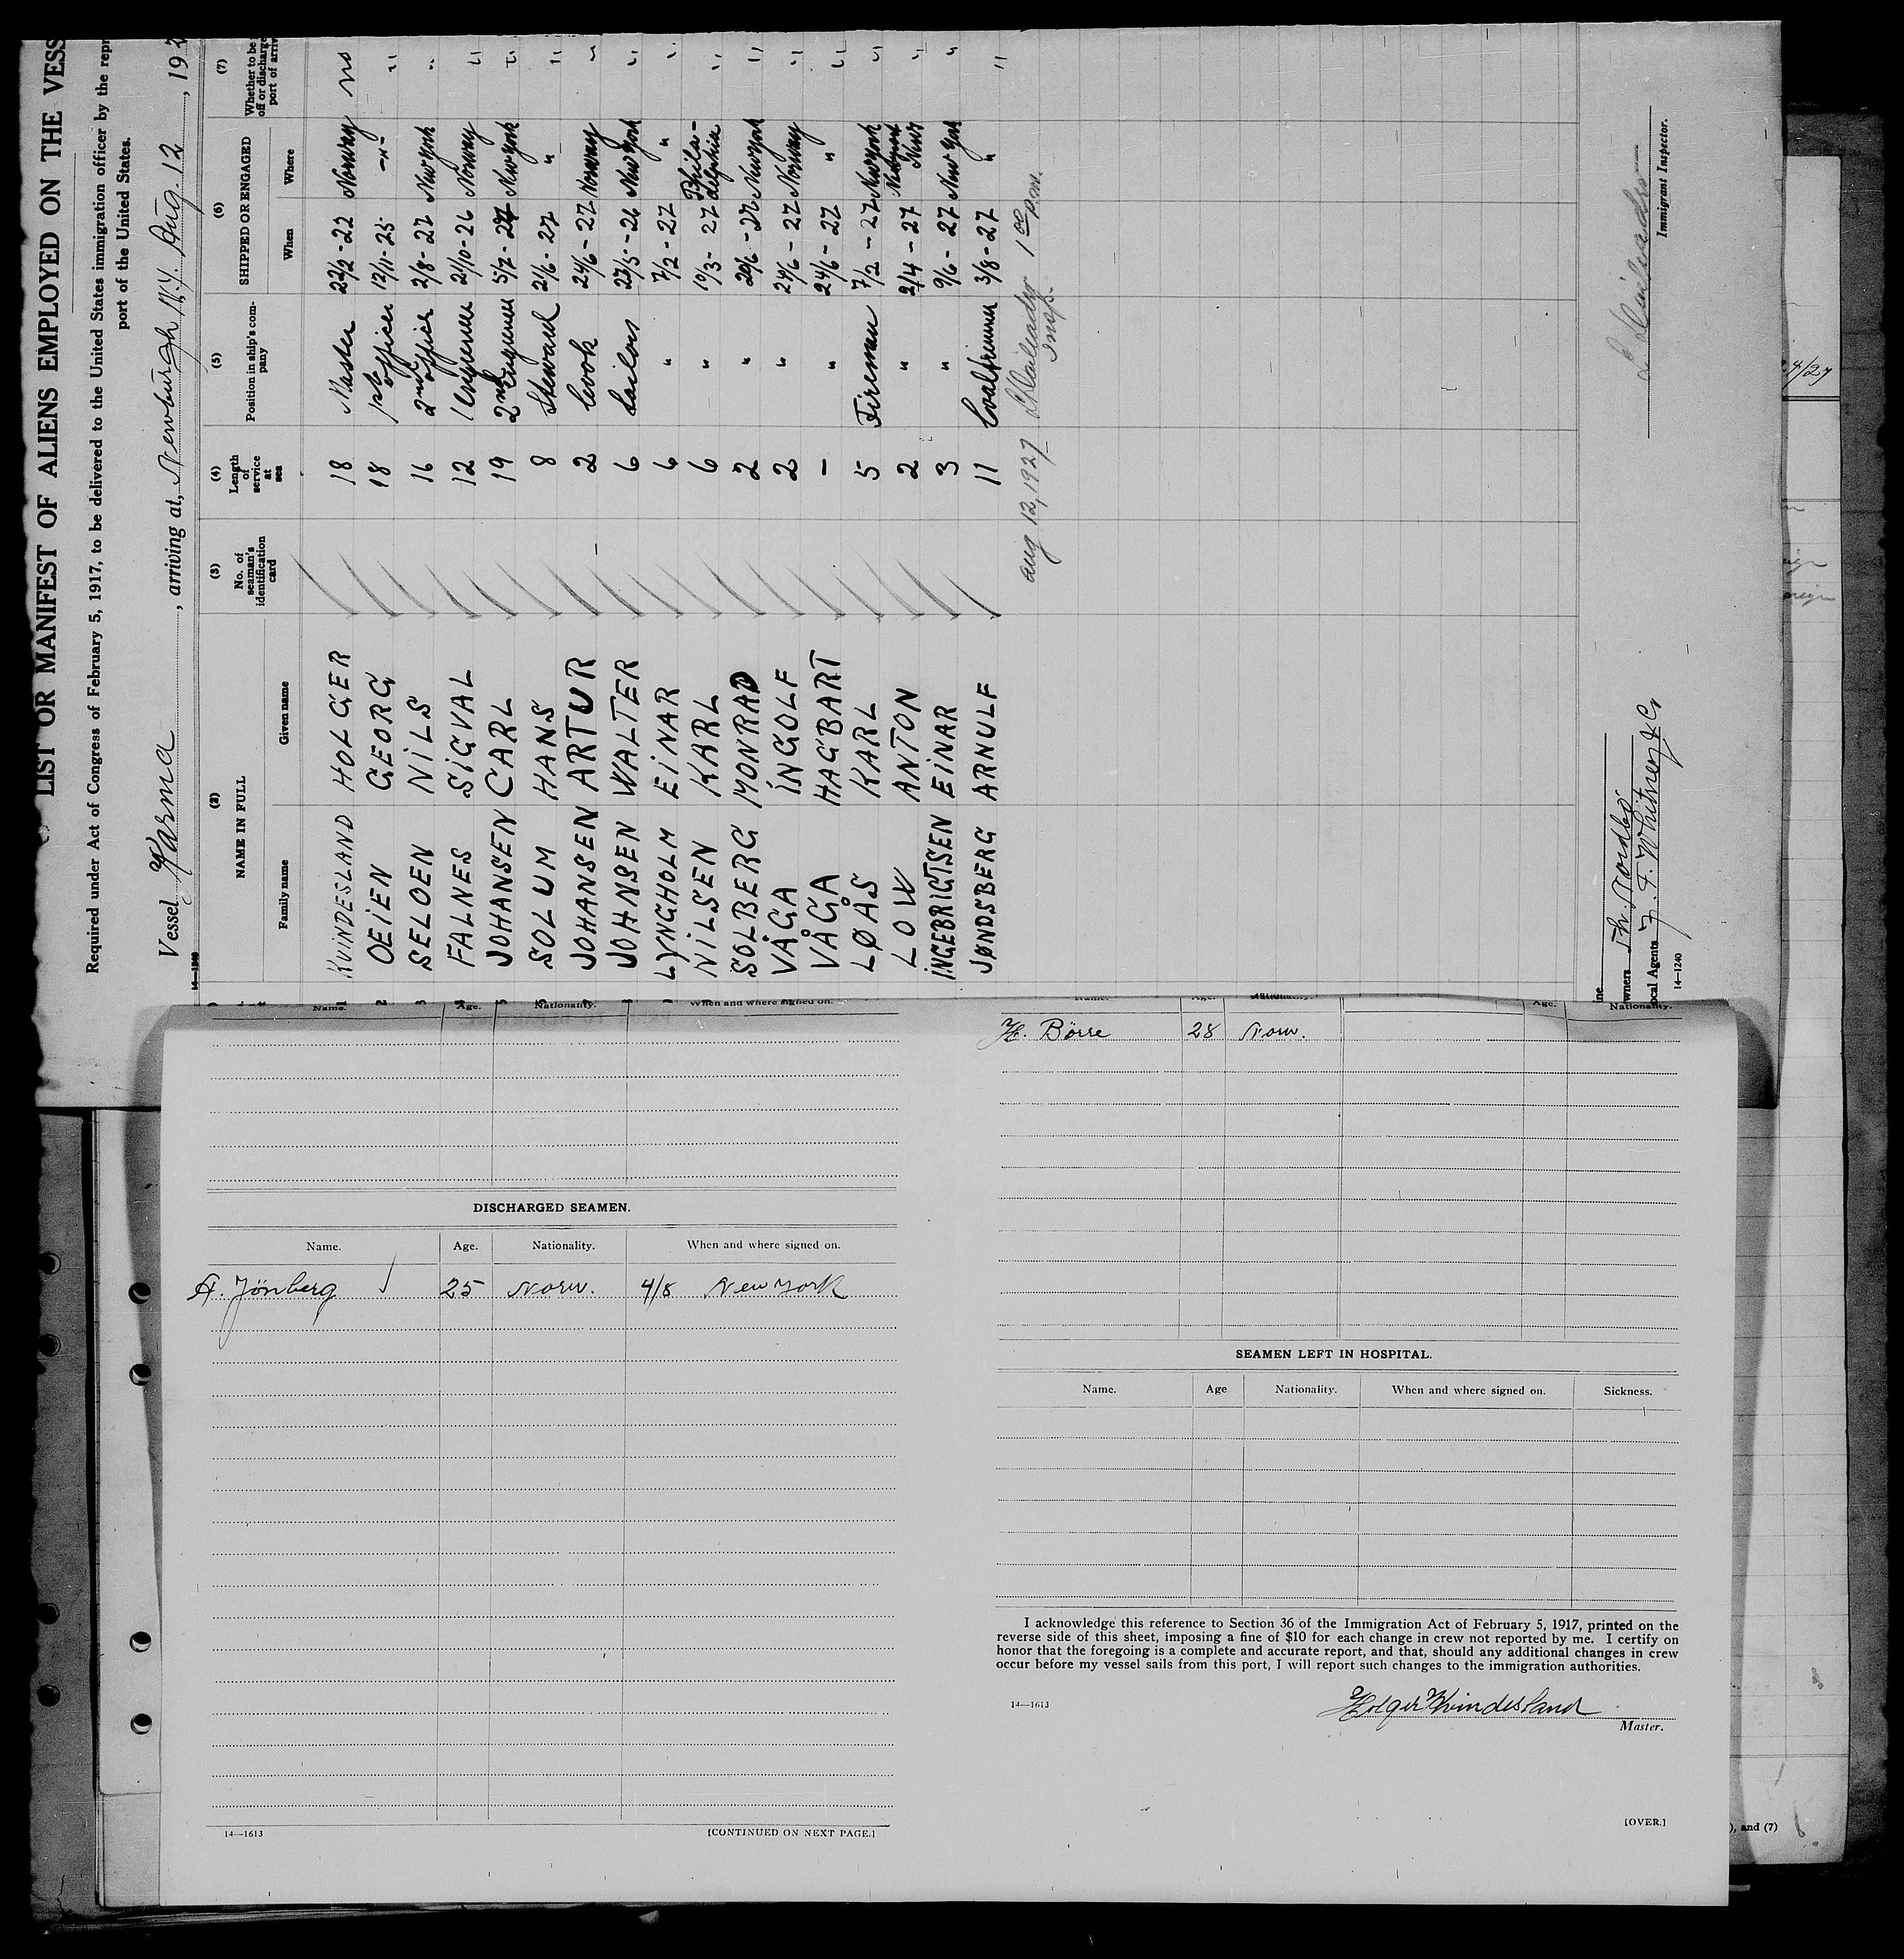 LIST OR MANIFEST OF ALIENS EMPLOYED ON THE VESS
Required under Act of Congress of February 5, 1917, to be delivered to the United States immigration officer by the repr
port of the United States.
Vessel Karma, arriving at, Newburgh N.Y. Aug. 12, 192
14-1240
(2) (3) (4) (5) (6) (7)
NAME IN FULL No. of seaman's identification card Length of service at sea Position in ship's company SHIPPED OR ENGAGED Whether to be off or discharge port of arriv
Family name Given name When Where
1 KVINDESLAND HOLGER 18 Master 22/2-22 Norway no
2 OEIEN GEORG 18 1st officer 12/11-25 -"- "
3 SELOEN NILS 16 2nd officer 2/8-27 New york "
4 FALNES SIGVAL 12 1 Engineer 21/10-26 Norway "
5 JOHANSEN CARL 19 2nd Engineer 5/7-27 New york "
SOLUM HANS 8 Steward 21/6-27 " "
7 JOHANSEN ARTUR 2 Cook 24/6-27 Norway "
8 JOHNSEN WALTER 6 Sailors 23/5-26 New york "
LYNGHOLM EINAR 6 " 7/2-27 " "
NILSEN KARL 6 " 10/3-27 Philadelphia "
SOLBERG MONRAD 2 " 20/6-27 New york "
VÅGA INGOLF 2 " 24/6-27 Norway "
VÅGA HAGBART - " 24/6-27 " "
LØÅS KARL 5 Fireman 7/2-27 New york "
LOW ANTON 2 " 2/4-27 "
INGEBRIGTSEN EINAR 3 " 9/6-27 New york "
JØNDSBERG ARNULF 11 Coaltrimmer 3/8-27 " "
Aug 12, 1927 1 00 p.m.
Insp.
Immigrant Inspector.
ne
wners
ocal Agents J. F. Whitney & Co
14-1240
4/27
Name. Age. Nationality. When and where signed on.
DISCHARGED SEAMEN.
Name. Age. Nationality. When and where signed on.
A. Jönberg 25 Norw. 4/8 New York
14—1613 [CONTINUED ON NEXT PAGE.]
Age. Nationality.
H. Börre 28 Norw.
SEAMEN LEFT IN HOSPITAL.
Name. Age Nationality. When and where signed on. Sickness.
I acknowledge this reference to Section 36 of the Immigration Act of February 5, 1917, printed on the
reverse side of this sheet, imposing a fine of $10 for each change in crew not reported by me. I certify on
honor that the foregoing is a complete and accurate report, and that, should any additional changes in crew
occur before my vessel sails from this port, I will report such changes to the immigration authorities.
14—1613 Holger Kvindesland
Master.
[OVER.]
), and (7)